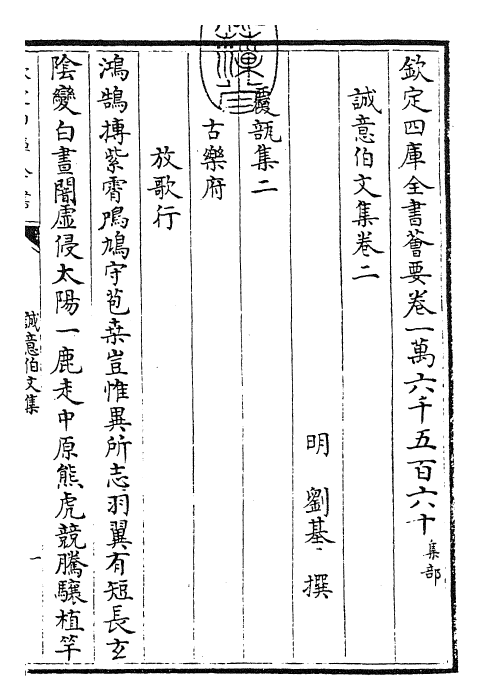 欽定四庫全書薈要卷一萬六千五百六十集部
誠意伯文集卷二
明 劉基 撰
覆瓿集二
古樂府
放歌行
鴻鵠摶紫霄鳲鳩守苞桑豈惟異所志羽翼有短長玄
陰變白晝闇虛侵太陽一鹿走中原熊虎競騰驤植竿
誠意伯文集
一